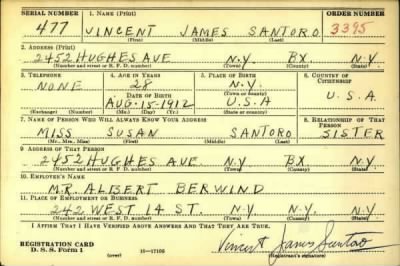 SERIAL NUMBER 1. NAME (Print) ORDER NUMBER
477 VINCENT JAMES SANTORO 3395
(First) (Middle) (Last)
2. ADDRESS (Print)
2452 HUGHES AVE N.Y. BX N.Y.
(Number and street or R. F. D. number) (Town) (County) (State)
3. TELEPHONE 4. AGE IN YEARS 5. PLACE OF BIRTH 6. COUNTRY OF CITIZENSHIP
NONE 28 N.Y.
DATE OF BIRTH (Town or county) U.S.A
AUG-15-1912 U.S.A
(Exchange) (Number) (Mo.) (Day) (Yr.) (State or country)
7. NAME OF PERSON WHO WILL ALWAYS KNOW YOUR ADDRESS 8. RELATIONSHIP OF THAT PERSON
MISS SUSAN SANTORO SISTER
(Mr., Mrs., Miss) (First) (Middle) (Last)
9. ADDRESS OF THAT PERSON
2452 HUGHES AVE N.Y. BX N.Y.
(Number and street or R. F. D. number) (Town) (County) (State)
10. EMPLOYER'S NAME
MR. ALBERT BERWIND
11. PLACE OF EMPLOYMENT OR BUSINESS
242 WEST 14 ST. N.Y. N.Y. N.Y.
(Number and street or R. F. D. number) (Town) (County) (State)
I AFFIRM THAT I HAVE VERIFIED ABOVE ANSWERS AND THAT THEY ARE TRUE.
REGISTRATION CARD
D. S. S. Form 1 (over) 16—17105 Vincent James Santoro
(Registrant's signature)